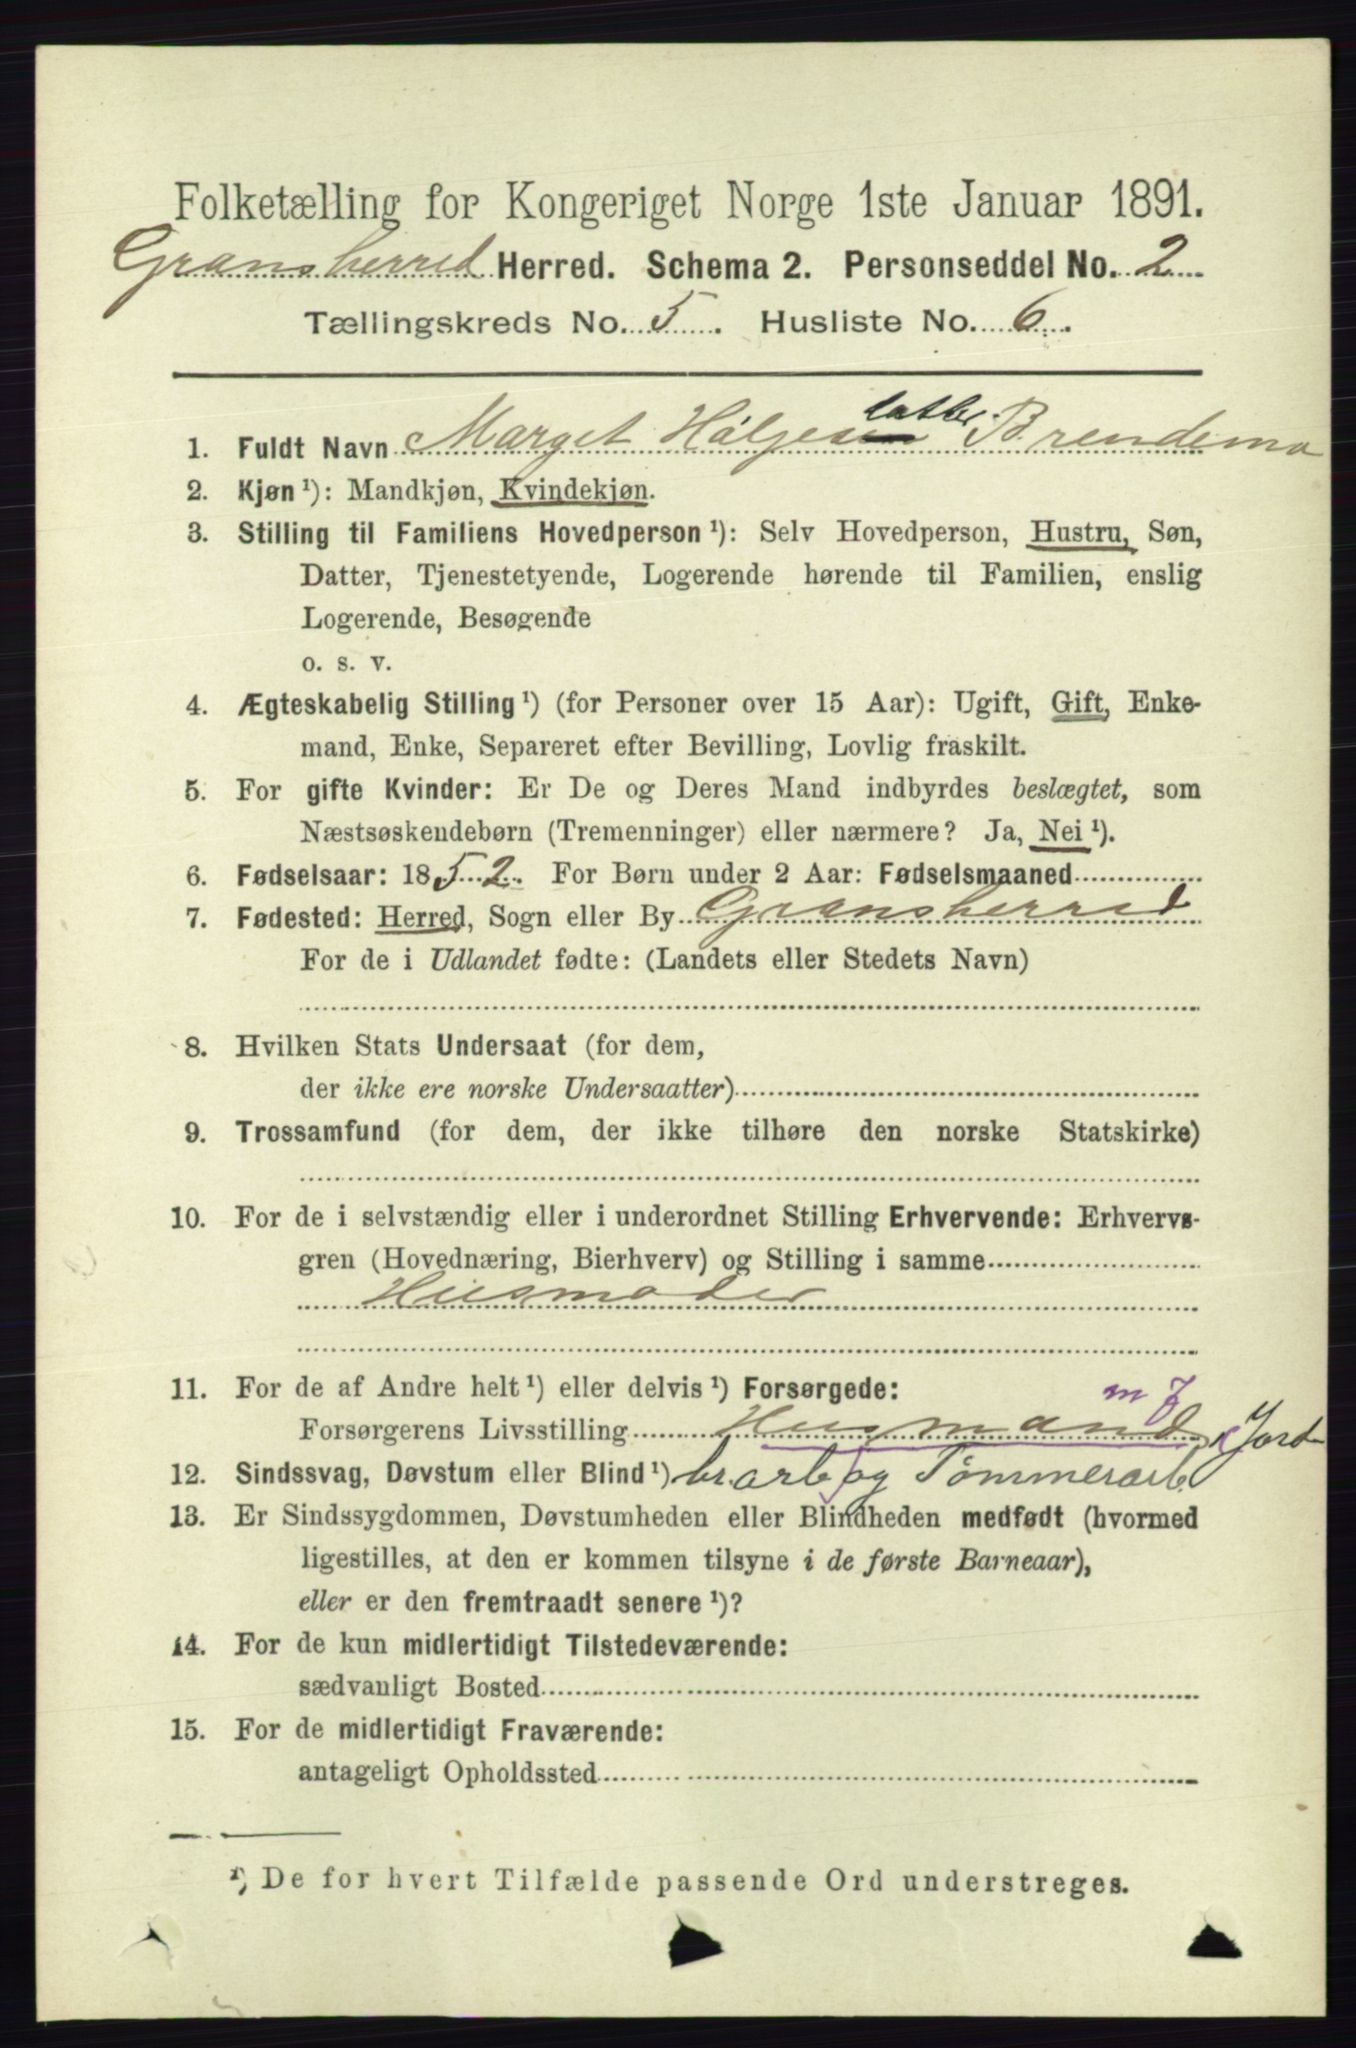 Folketælling for Kongeriget Norge 1ste Januar 1891.
Gransherred Herred. Schema 2. Personseddel No. 2
Tællingskreds No. 5. Husliste No. 6.
1. Fuldt Navn Marget Håljes Brendemo
2. Kjøn ¹): Mandkjøn, Kvindekjøn.
3. Stilling til Familiens Hovedperson ¹): Selv Hovedperson, Hustru, Søn,
Datter, Tjenestetyende, Logerende hørende til Familien, enslig
Logerende, Besøgende
o. s. v.
4. Ægteskabelig Stilling ¹) (for Personer over 15 Aar): Ugift, Gift, Enke-
mand, Enke, Separeret efter Bevilling, Lovlig fraskilt.
5. For gifte Kvinder: Er De og Deres Mand indbyrdes beslægtet, som
Næstsøskendebørn (Tremenninger) eller nærmere? Ja, Nei ¹).
6. Fødselsaar: 1852. For Børn under 2 Aar: Fødselsmaaned
7. Fødested: Herred, Sogn eller By Gransherred
For de i Udlandet fødte: (Landets eller Stedets Navn)
8. Hvilken Stats Undersaat (for dem,
der ikke ere norske Undersaatter)
9. Trossamfund (for dem, der ikke tilhøre den norske Statskirke)
10. For de i selvstændig eller i underordnet Stilling Erhvervende: Erhvervs-
gren (Hovednæring, Bierhverv) og Stilling i samme
Husmoder
11. For de af Andre helt ¹) eller delvis ¹) Forsørgede:
m J
Forsørgerens Livsstilling Husmand Jord
12. Sindssvag, Døvstum eller Blind ¹) br. arb og Tømmerarb.
13. Er Sindssygdommen, Døvstumheden eller Blindheden medfødt (hvormed
ligestilles, at den er kommen tilsyne i de første Barneaar),
eller er den fremtraadt senere ¹)?
14. For de kun midlertidigt Tilstedeværende:
sædvanligt Bosted
15. For de midlertidigt Fraværende:
antageligt Opholdssted
¹) De for hvert Tilfælde passende Ord understreges.